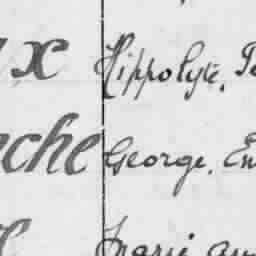 x Hippolyte,
che George, En
Marie